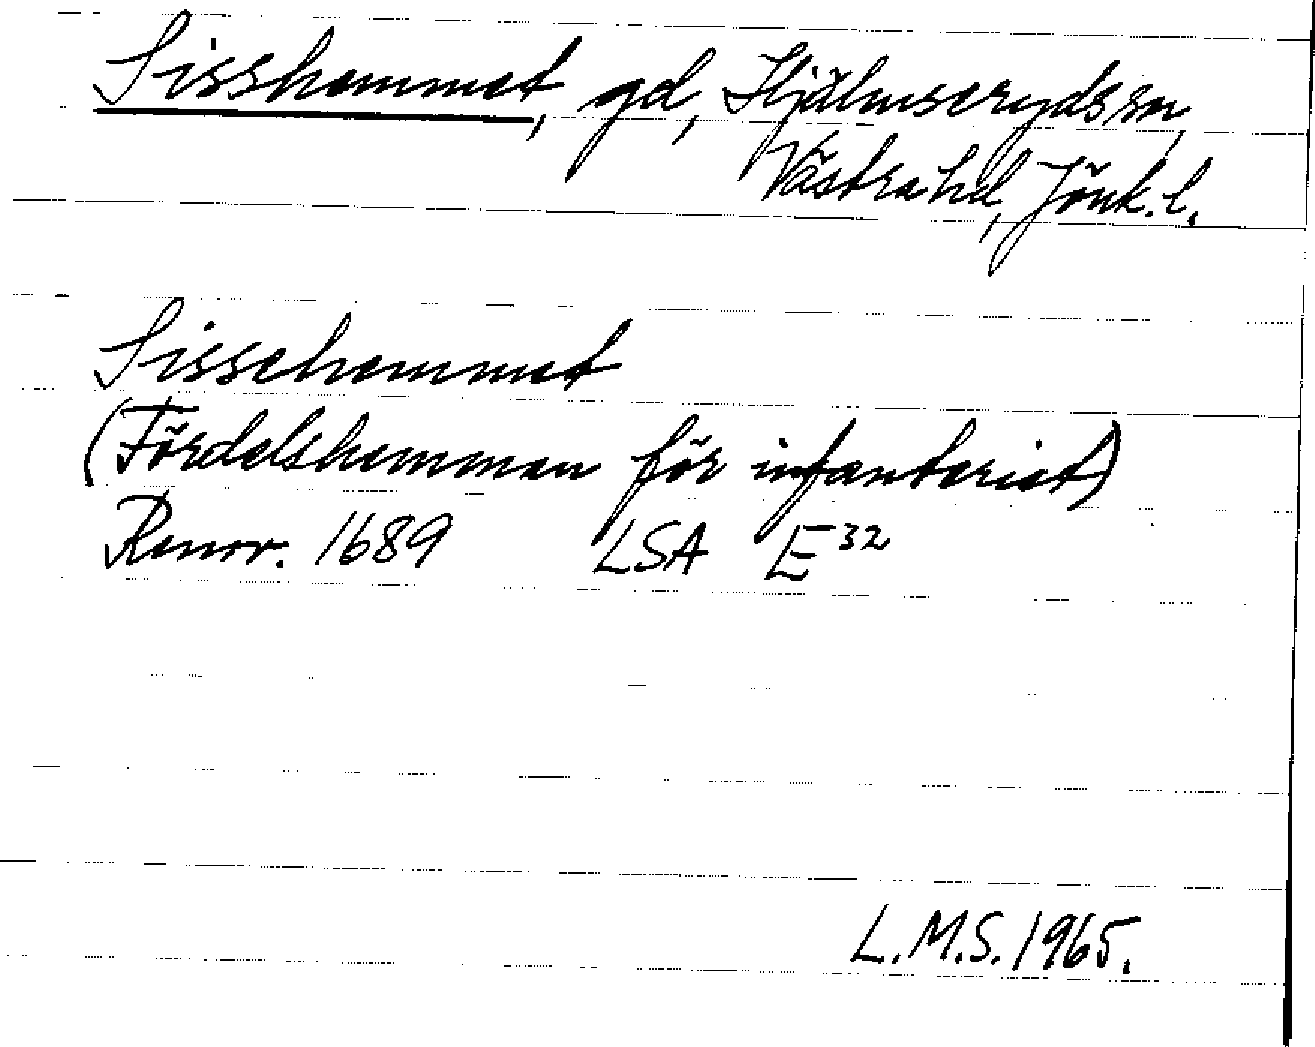 Sisshemmet, gd, Hjälmseryds sn,
Västra hd, Jönk. l.
Sissehemmet
(Fördelshemman för infanteriet)
Renov. 1689 LSA E32
L.M.S. 1965.